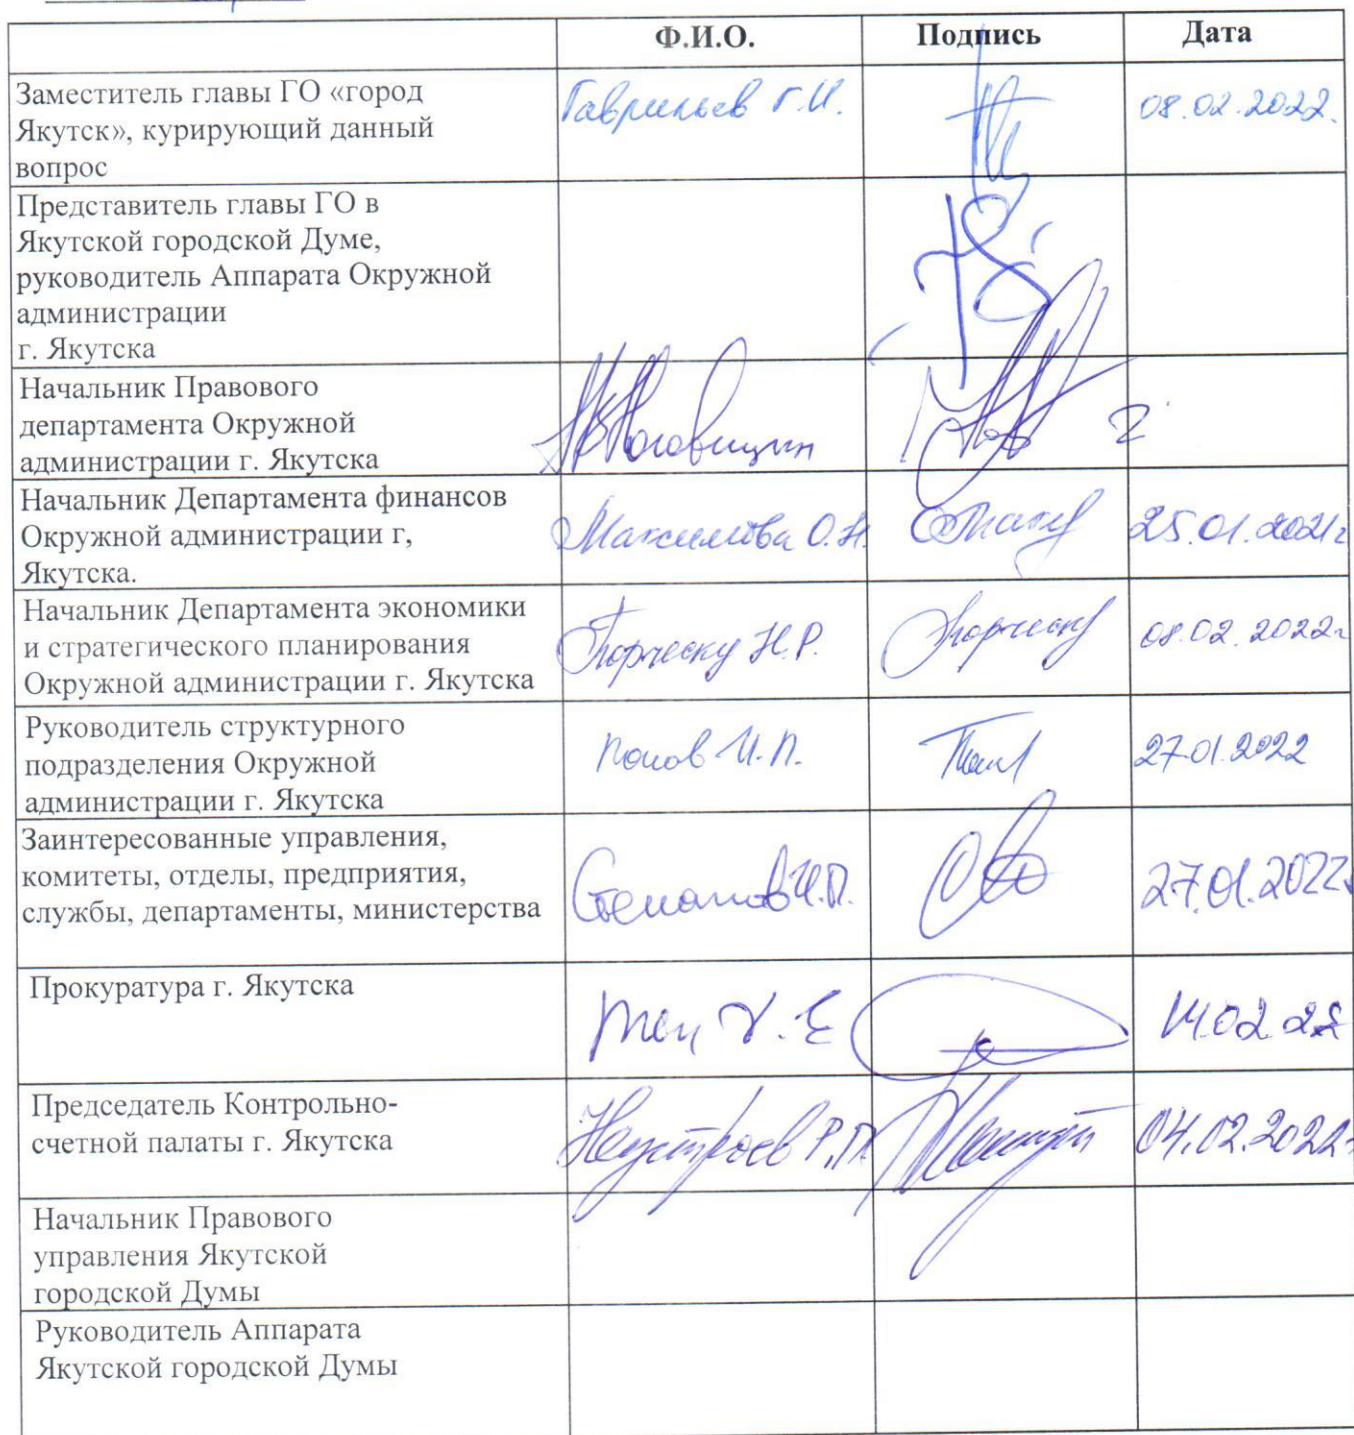 Ф.И.О. Подпись Дата
Заместитель главы ГО «город
Якутск», курирующий данный
вопрос
Гаврильев Г.И. 08.02.2022.
Представитель главы ГО в
Якутской городской Думе,
руководитель Аппарата Окружной
администрации
г. Якутска
Начальник Правового
департамента Окружной
администрации г. Якутска
Ноговицын
Начальник Департамента финансов
Окружной администрации г,
Якутска.
Максимова О.Н. 25.01.2021г
Начальник Департамента экономики
и стратегического планирования
Окружной администрации г. Якутска
Торческу Н.Р. 08.02.2022г
Руководитель структурного
подразделения Окружной
администрации г. Якутска
Попов И.П. 27.01.2022
Заинтересованные управления,
комитеты, отделы, предприятия,
службы, департаменты, министерства
Степанов И.П. 27.01.2022
Прокуратура г. Якутска
14.02.22
Председатель Контрольно-
счетной палаты г. Якутска
Неустроев Р.П. 04.02.2022г
Начальник Правового
управления Якутской
городской Думы
Руководитель Аппарата
Якутской городской Думы